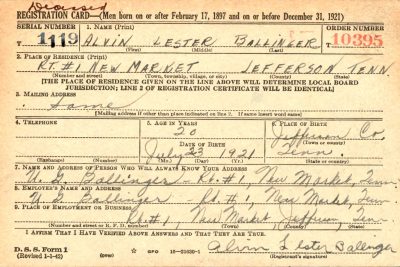 Deceased
REGISTRATION CARD—(Men born on or after February 17, 1897 and on or before December 31, 1921)
SERIAL NUMBER 1. NAME (Print) ORDER NUMBER
T 1119 ALVIN LESTER BALLINGER T 10395
(First) (Middle) (Last)
2. PLACE OF RESIDENCE (Print)
RT. #1 NEW MARKET JEFFERSON TENN
(Number and street) (Town, township, village, or city) (County) (State)
[THE PLACE OF RESIDENCE GIVEN ON THE LINE ABOVE WILL DETERMINE LOCAL BOARD
JURISDICTION; LINE 2 OF REGISTRATION CERTIFICATE WILL BE IDENTICAL]
3. MAILING ADDRESS
Same
[Mailing address if other than place indicated on line 2. If same insert word same]
4. TELEPHONE 5. AGE IN YEARS 6. PLACE OF BIRTH
20 Jefferson Co.
DATE OF BIRTH (Town or county)
July 23 1921 Tenn.
(Exchange) (Number) (Mo.) (Day) (Yr.) (State or country)
7. NAME AND ADDRESS OF PERSON WHO WILL ALWAYS KNOW YOUR ADDRESS
Ballinger - Rt. #1, New Market, Tenn.
8. EMPLOYER'S NAME AND ADDRESS
Ballinger - Rt. #1, New Market, Tenn.
9. PLACE OF EMPLOYMENT OR BUSINESS
Rt. #1, New Market Jefferson, Tenn
(Number and street or R. F. D. number) (Town) (County) (State)
I AFFIRM THAT I HAVE VERIFIED ABOVE ANSWERS AND THAT THEY ARE TRUE.
D. S. S. Form 1
(Revised 1-1-42) (over) GPO 16—21630-1 Alvin Lester Ballinger